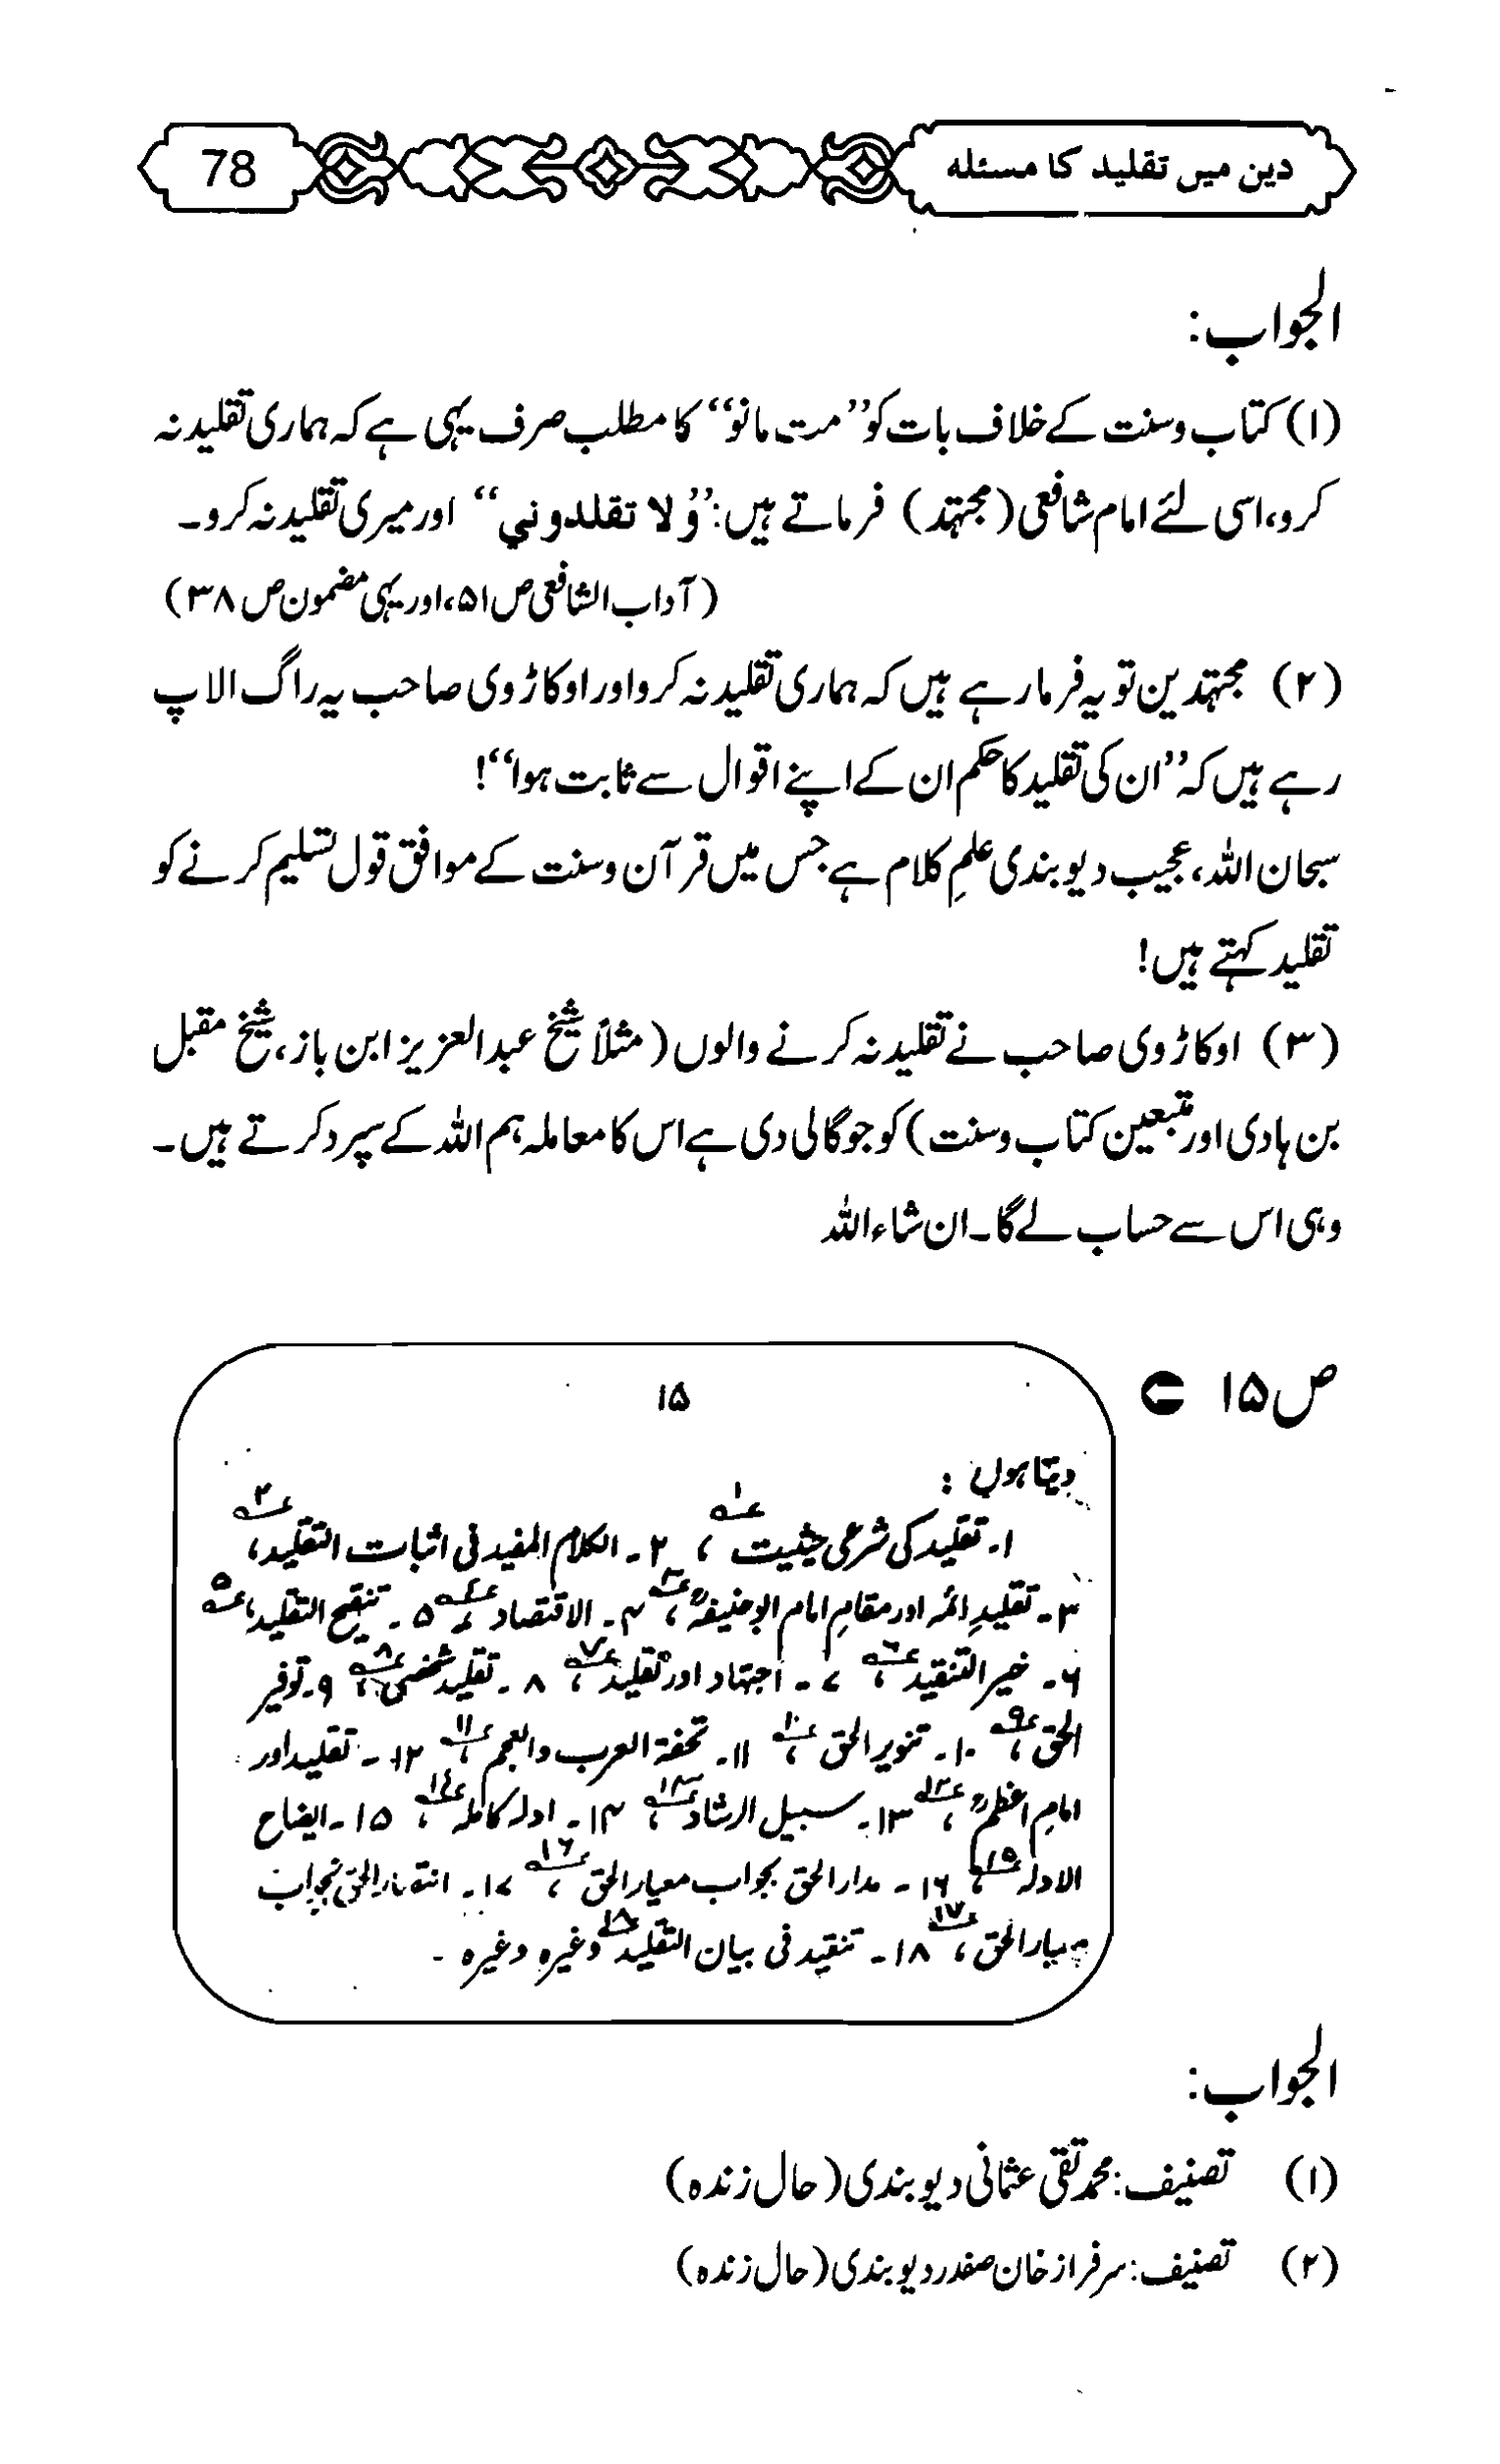 دین میں تقلید کا مسئلہ 78
الجواب:
(۱) کتاب وسنت کے خلاف بات کو ’’مت مانو‘‘ کا مطلب صرف یہی ہے کہ ہماری تقلید نہ
کرو، اسی لئے امام شافعی (مجتہد) فرماتے ہیں: ’’وَلا تقلدوني‘‘ اور میری تقلید نہ کرو۔
(آداب الشافعی ص ۵۱، اور یہی مضمون ص ۳۸)
(۲) مجتہدین تو یہ فرما رہے ہیں کہ ہماری تقلید نہ کرو اور اوکاڑوی صاحب یہ راگ الاپ
رہے ہیں کہ ’’ان کی تقلید کا حکم ان کے اپنے اقوال سے ثابت ہوا‘‘!
سبحان اللہ، عجیب دیوبندی علمِ کلام ہے جس میں قرآن وسنت کے موافق قول تسلیم کرنے کو
تقلید کہتے ہیں!
(۳) اوکاڑوی صاحب نے تقلید نہ کرنے والوں (مثلاً شیخ عبدالعزیز ابن باز، شیخ مقبل
بن ہادی اور متبعین کتاب وسنت) کو جو گالی دی ہے اس کا معاملہ ہم اللہ کے سپرد کرتے ہیں۔
وہی اس سے حساب لے گا۔ ان شاء اللہ
ص ۱۵
۱۵
دیتا ہوں :
۱۔ تقلید کی شرعی حیثیت ؏۱، ۲۔ الکلام المفید فی اثبات التقلید ؏۲،
۳۔ تقلیدِ ائمہ اور مقامِ امام ابوحنیفہؒ ؏۳، ۴۔ الاقتصاد ؏۴، ۵۔ تنقیح التقلید ؏۵،
۶۔ خیر التنقید ؏۶، ۷۔ اجتہاد اور تقلید ؏۷، ۸۔ تقلید شخصی ؏۸، ۹۔ توفیر
الحق ؏۹، ۱۰۔ تنویر الحق ؏۱۰، ۱۱۔ تحفۃ العرب والعجم ؏۱۱، ۱۲۔ تقلید اور
امامِ اعظمؒ ؏۱۲، ۱۳۔ سبیل الرشاد ؏۱۳، ۱۴۔ ادلہ کاملہ ؏۱۴، ۱۵۔ ایضاح
الادلہ ؏۱۵، ۱۶۔ مدار الحق بجواب معیار الحق ؏۱۶، ۱۷۔ انتصار الحق بجواب
معیار الحق ؏۱۷، ۱۸۔ تنقید فی بیان التقلید ؏۱۸ وغیرہ وغیرہ ۔
الجواب:
(۱) تصنیف: محمد تقی عثمانی دیوبندی (حال زندہ)
(۲) تصنیف: سرفراز خان صفدر دیوبندی (حال زندہ)